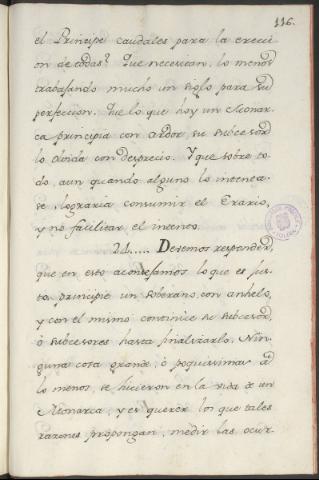 116.
el Principe caudales para la ereci
on de todas? Que necesitan, lo menos
trabajando mucho un siglo para su
perfeccion. Que lo que hoy un Monar
ca principia con ardor su subcesor
lo olvida con desprecio. Y que sobre to
do, aun quando alguno lo intenta
se, lograria consumir el Erario,
y no facilitar el intento.
24..... Devemos responder,
que en esto aconsejamos lo que es jus
to, principie un Soberano, con anhelo,
y con el mismo continúe su Subcesor,
ó subcesores hasta finalizarlo. Nin
guna cosa grande, ó poquissimas á
lo menos, se hicieron en la vida de un
Monarca, y es querer los que tales
razones propongan, medir las ocur-